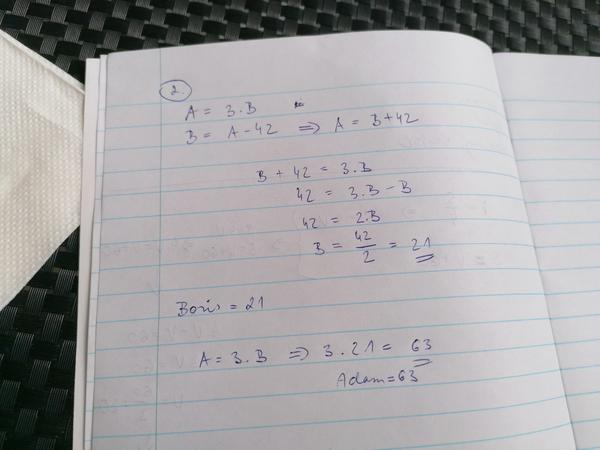 2.
A = 3.B
B = A - 42 => A = B + 42
B + 42 = 3.B
42 = 3.B - B
42 = 2.B
B = 42/2 = 21
Boris = 21
A = 3.B => 3.21 = 63
Adam = 63